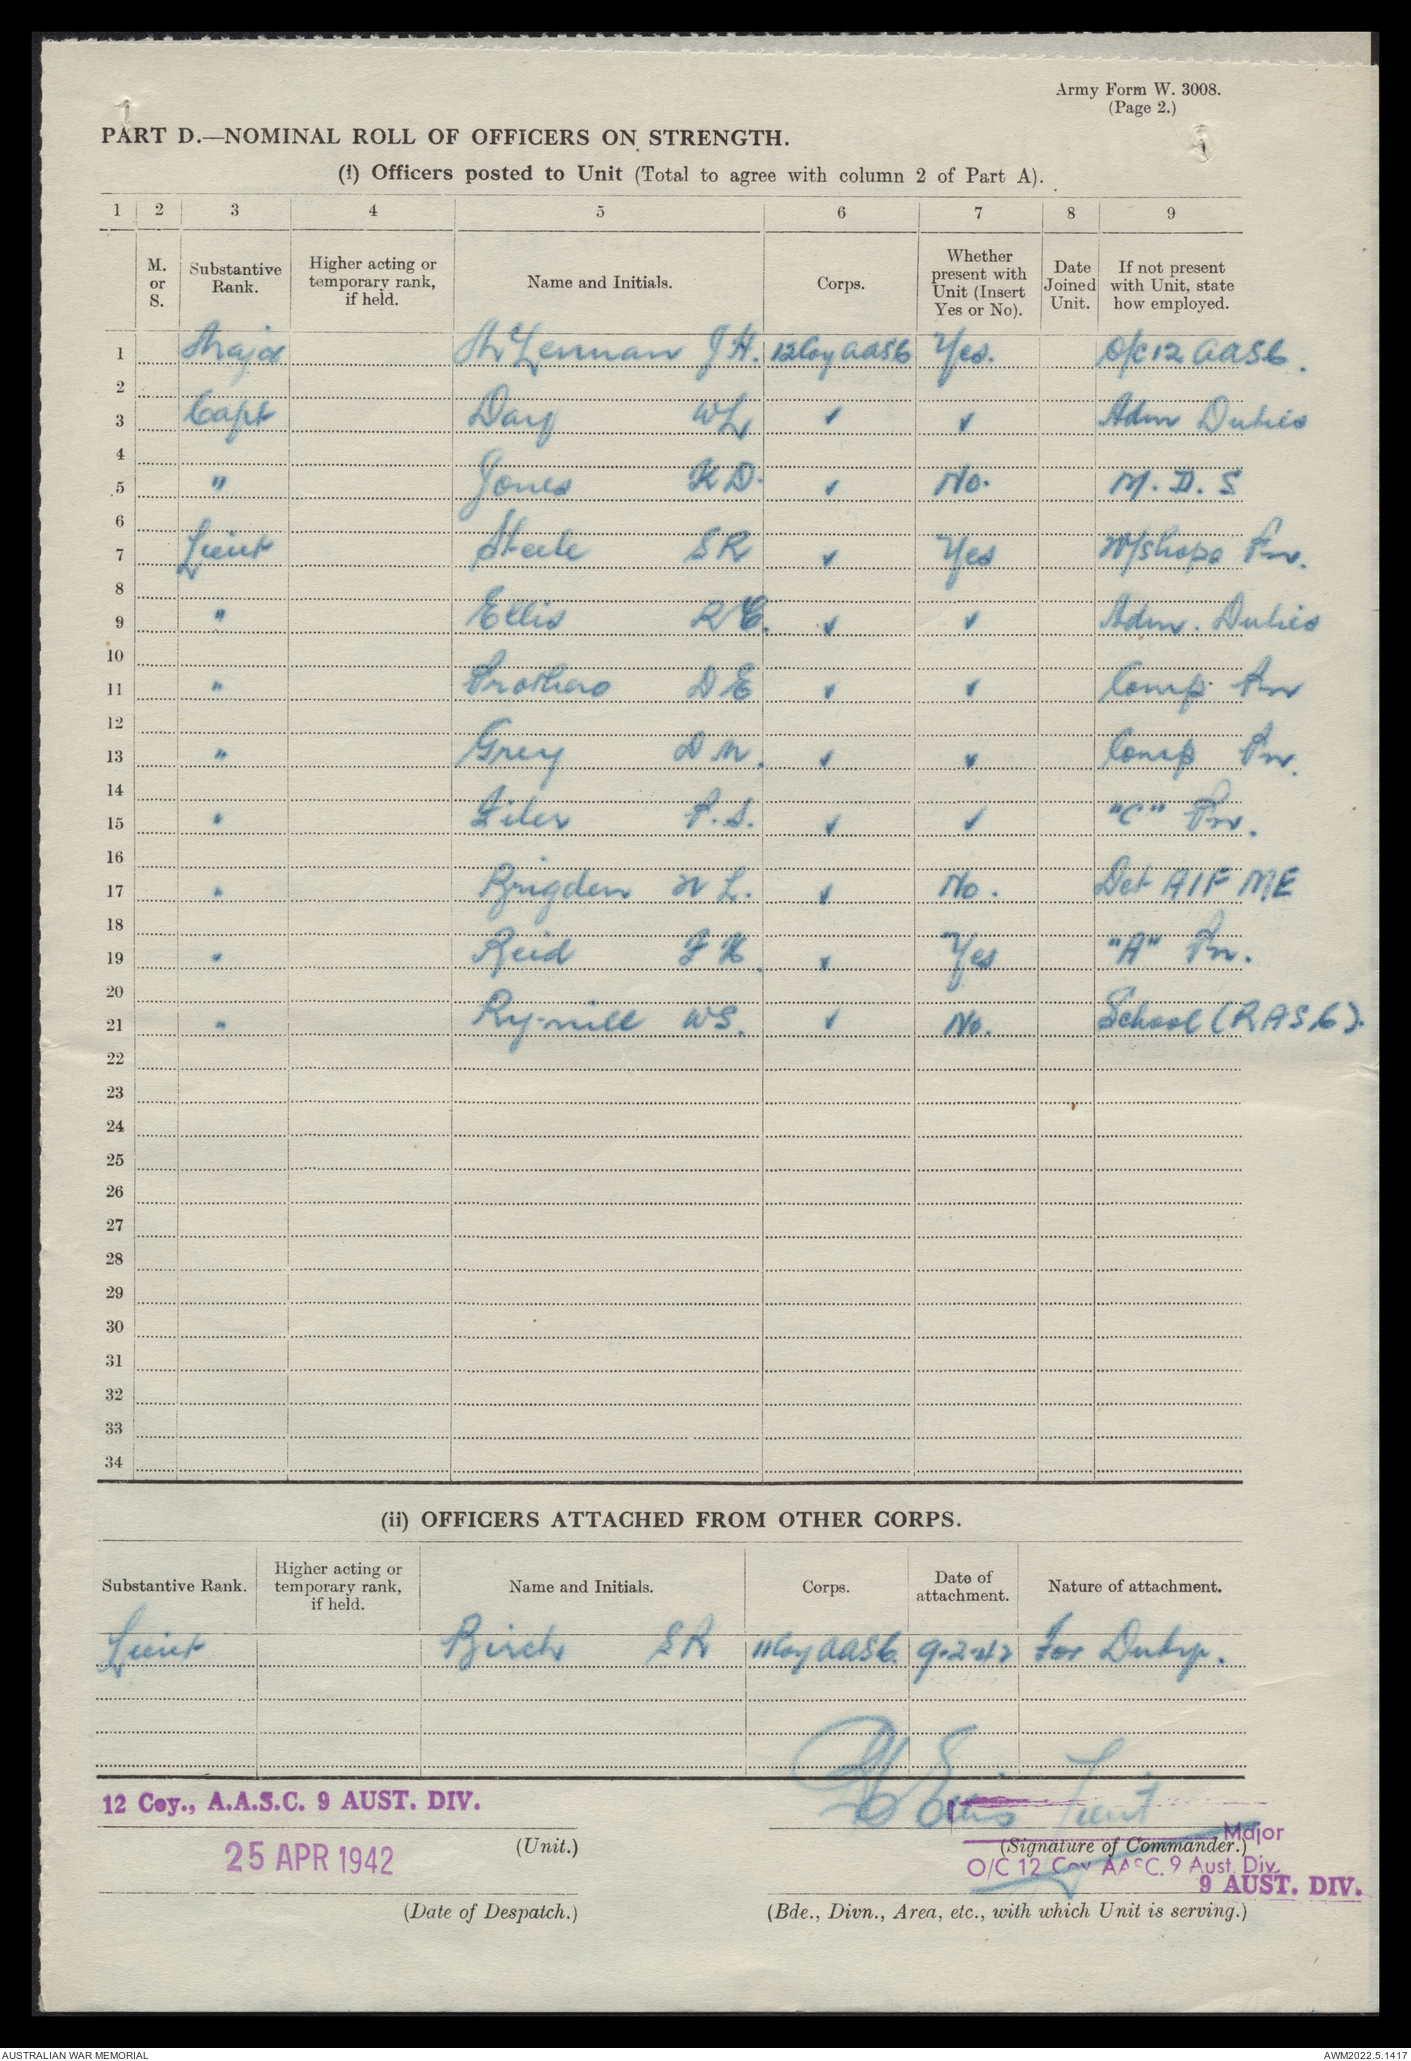 Army Form W. 3008.
(Page 2.)
PART D.—NOMINAL ROLL OF OFFICERS ON STRENGTH.
(i) Officers posted to Unit (Total to agree with column 2 of Part A).
1 2 3 4 5 6 7 8 9
M. or S. Substantive Rank. Higher acting or temporary rank, if held. Name and Initials. Corps. Whether present with Unit (Insert Yes or No). Date Joined Unit. If not present with Unit, state how employed.
1 Major McLennan J H. 12 Coy AASC Yes. O/C 12 AASC.
2
3 Capt Day WL ✓ ✓ Adm Duties
4
5 " Jones K D. ✓ No. M. D. S
6
7 Lieut Steele S R ✓ Yes W/shops Pn.
8
9 " Ellis R C. ✓ ✓ Adm. Duties
10
11 " Prothero D E ✓ ✓ Comp. Pn
12
13 " Grey D M. ✓ ✓ Comp Pn.
14
15 " P. S. ✓ ✓ "C" Pn.
16
17 " Brigden W L. ✓ No. Det AIF ME
18
19 " Reid F K. ✓ Yes "A" Pn.
20
21 " Rymill WS. ✓ No. School (RASC).
22
23
24
25
26
27
28
29
30
31
32
33
34
(ii) OFFICERS ATTACHED FROM OTHER CORPS.
Substantive Rank. Higher acting or temporary rank, if held. Name and Initials. Corps. Date of attachment. Nature of attachment.
Lieut Birch S R 11 Coy AASC. 9-2-42 For Duty.
12 Coy., A.A.S.C. 9 AUST. DIV.
Ellis Lieut
(Unit.)
Major
(Signature of Commander.)
25 APR 1942
O/C 12 Coy AASC. 9 Aust. Div.
9 AUST. DIV.
(Date of Despatch.)
(Bde., Divn., Area, etc., with which Unit is serving.)
AUSTRALIAN WAR MEMORIAL
AWM2022.5.1417